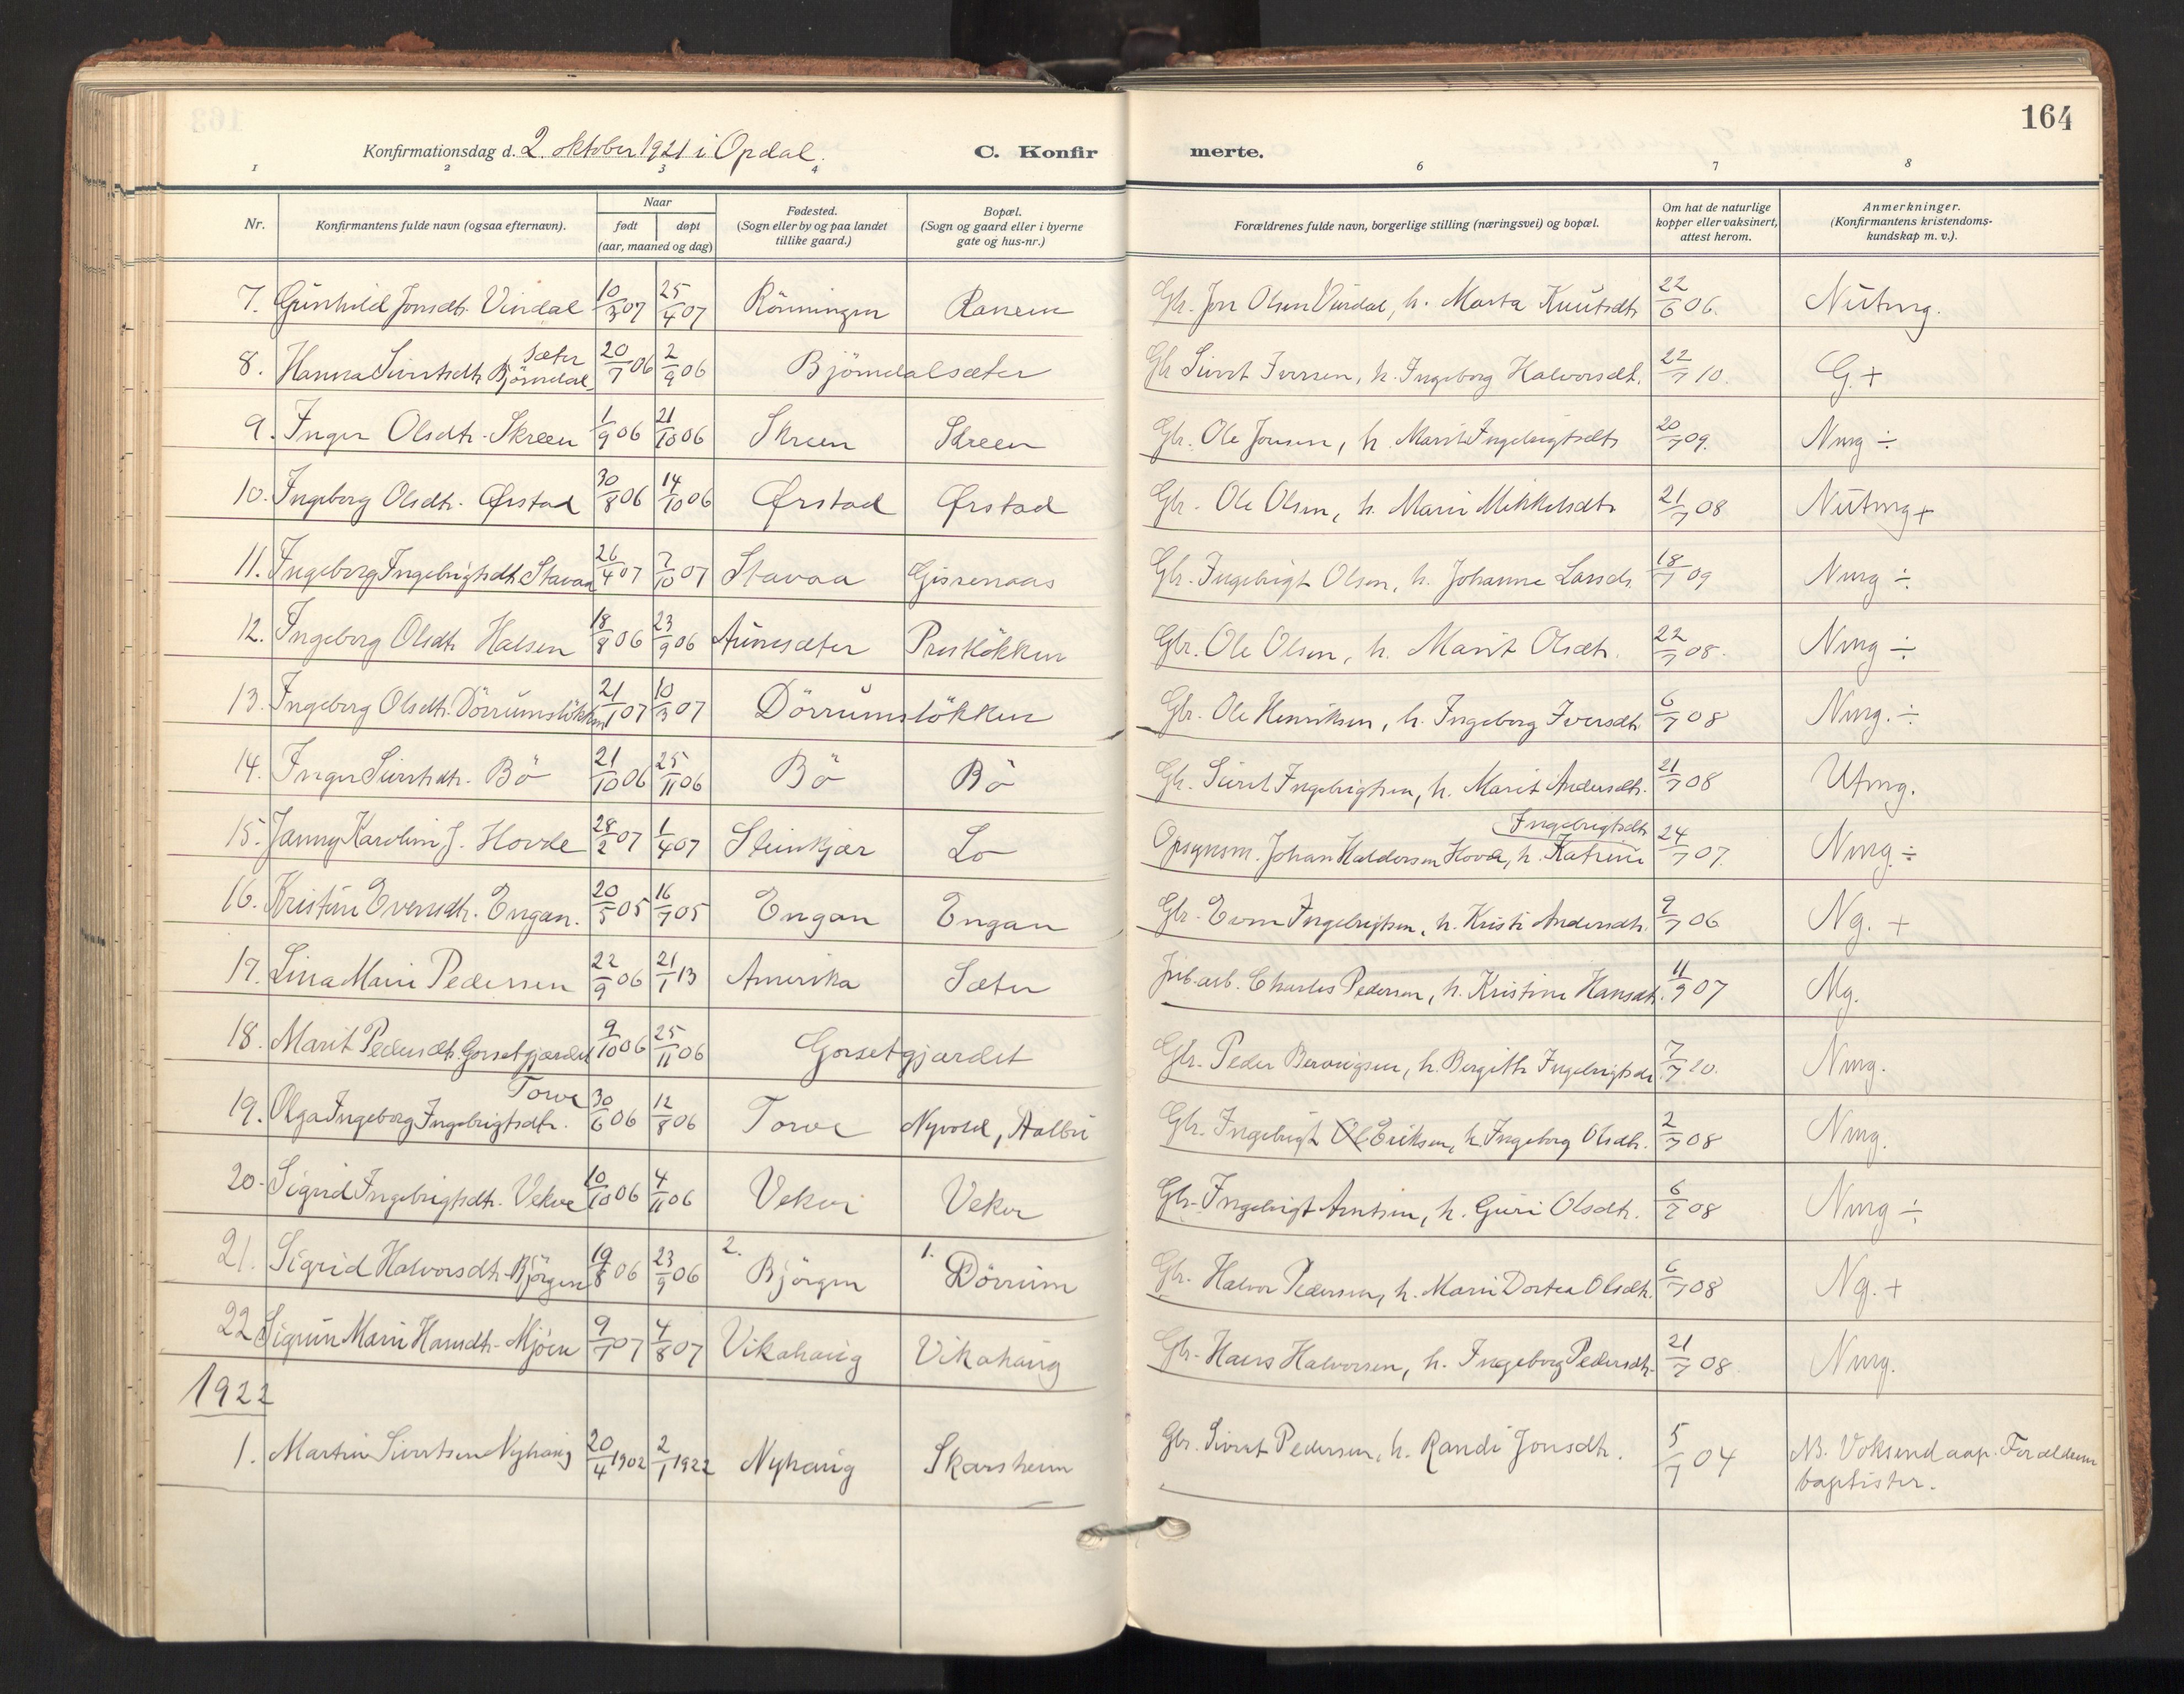 164
Konfirmationsdag d. 2. oktober 1921 i Opdal. C. Konfir merte.
1 2 3 4 6 7 8
Nr. Konfirmantens fulde navn (ogsaa efternavn). Naar født døpt (aar, maaned og dag) Fødested. (Sogn eller by og paa landet tillike gaard.) Bopæl. (Sogn og gaard eller i byerne gate og hus-nr.) Forældrenes fulde navn, borgerlige stilling (næringsvei) og bopæl. Om hat de naturlige kopper eller vaksinert, attest herom. Anmerkninger. (Konfirmantens kristendoms-kundskap m. v.).
7. Gunhild Jonsdtr. Vindal 10/3 07 25/4 07 Rönningen Raneen Gbr. Jon Olsen Vindal, h. Marta Knutsdtr 22/6 06. Nutmg.
8. Hanna Sivertsdtr. Björndalsæter 20/7 06 2/9 06 Björndalsæter Gbr Sivert Iversen, h. Ingeborg Halvorsdtr. 22/7 10. G. +
9. Inger Olsdtr. Skreen 1/9 06 21/10 06 Skreen Skreen Gbr. Ole Jonsen, h. Marit Ingebrigtsdtr 20/7 09. Nmg ÷
10. Ingeborg Olsdtr. Ørstad 30/8 06 14/10 06 Ørstad Ørstad Gbr. Ole Olsen, h. Mari Mikkelsdtr 21/7 08 Nutmg +
11. Ingeborg Ingebrigtsdtr. Stavaa 26/4 07 7/10 07 Stavaa Gisrenaas Gbr. Ingebrigt Olsen, h. Johanne Larsdr. 18/7 09 Nmg ÷
12. Ingeborg Olsdtr Halsen 18/8 06 23/9 06 Aunesæter Prestlökken Gbr. Ole Olsen, h. Marit Olsdtr. 22/7 08. Nmg ÷
13. Ingeborg Olsdtr. Dörrumslökken 21/1 07 10/3 07 Dörrumslökken Gbr. Ole Henriksen, h. Ingeborg Iversdtr. 6/7 08 Nmg. ÷
14. Inger Sivertsdtr. Bö 21/10 06 25/11 06 Bö Bö Gbr. Sivert Ingebrigtsen, h. Marit Andersdtr. 21/7 08 Utmg.
15. Janny Karoline J. Hovde 28/2 07 1/4 07 Steinkjær Lo Opsynsm. Johan Haldorsen Hovde, h. Katrine Ingebrigtsdtr 24/7 07. Nmg ÷
16. Kristine Evensdtr. Engan. 20/5 05 16/7 05 Engan Engan Gbr. Even Ingebrigtsen, h. Kristi Andersdtr. 9/7 06 Ng. +
17. Lina Marie Pedersen 22/9 06 21/1 13 Amerika Sæter Jrb.arb. Charles Pedersen, h. Kristine Hansdtr. 11/9 07 Mg.
18. Marit Pedersdtr. Gorsetgjærdet 9/10 06 25/11 06 Gorsetgjærdet Gbr. Peder h. Bergitte Ingebrigtsdr. 7/7 20. Nmg.
19. Olga Ingeborg Ingebrigtsdtr. Torve 30/6 06 12/8 06 Torve Nyvold, Aalbu Gbr. Ingebrigt Eriksen, h. Ingeborg Olsdtr. 2/7 08 Nmg.
20. Sigrid Ingebrigtsdtr. Vekve 10/10 06 4/11 06 Vekve Vekve Gbr. Ingebrigt Arntsen, h. Guri Olsdtr. 6/7 08 Nmg ÷
21. Sigrid Halvorsdtr. Björgen 19/8 06 23/9 06 2. Björgen 1. Dörrum Gbr. Halvor Pedersen, h. Marie Dortea Olsdtr. 6/7 08 Ng. +
22 Sigrun Marie Hansdtr. Mjöen 9/7 07 4/8 07 Vikahaug Vikahaug Gbr. Hans Halvorsen, h. Ingeborg Pedersdtr. 21/7 08 Nmg.
1922
1. Martin Sivertsen Nyhaug 20/4 1902 2/1 1922 Nyhaug Skarsheim Gbr. Sivert Pedersen, h. Randi Jonsdtr. 5/7 04 NB. Voksendaap. Forældrene baptister.